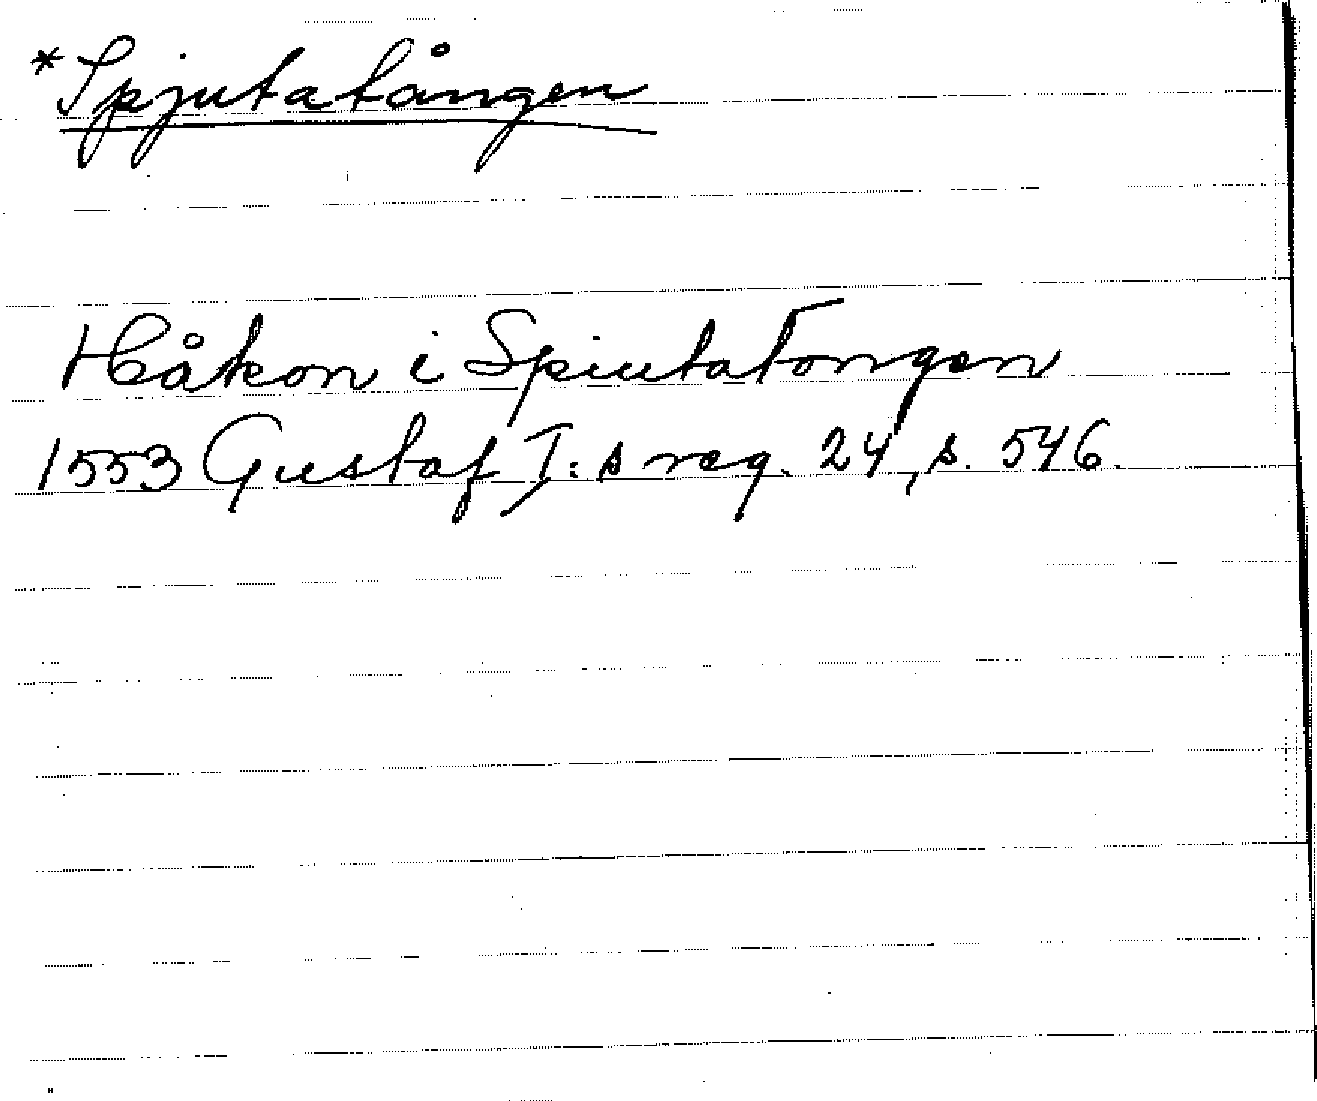 *Spjutatången
Håkon i Spiutatongen
1553 Gustaf I:s reg. 24, s. 546.